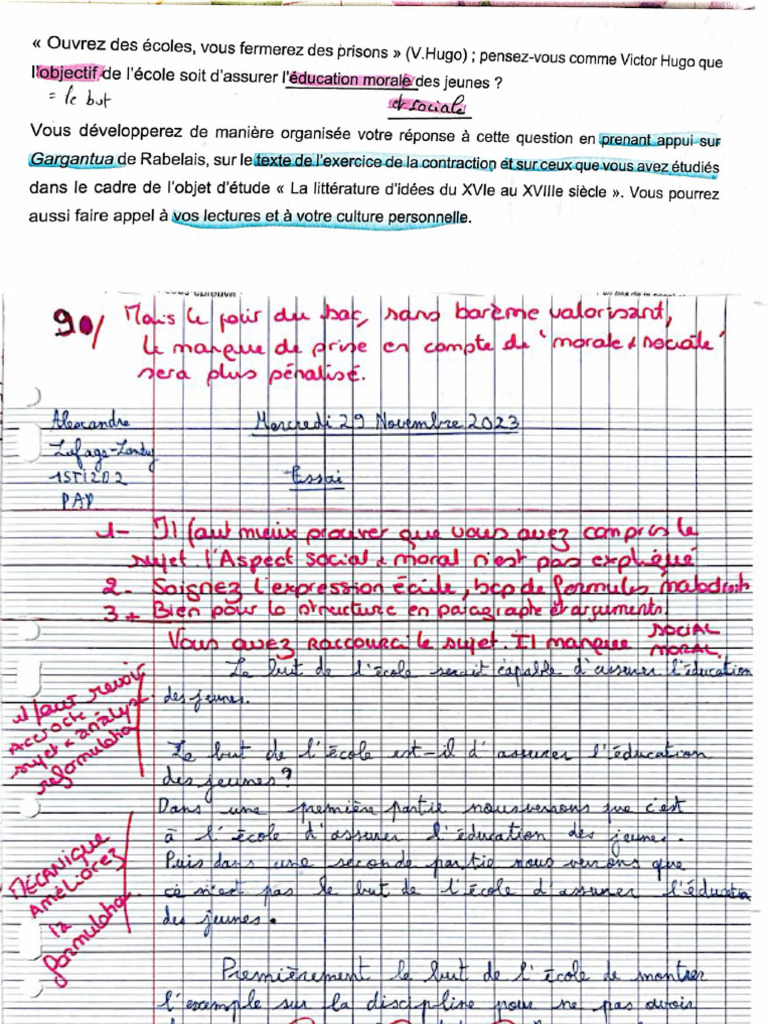 « Ouvrez des écoles, vous fermerez des prisons » (V.Hugo) ; pensez-vous comme Victor Hugo que
l'objectif de l'école soit d'assurer l'éducation morale des jeunes ?
= le but
et sociale
Vous développerez de manière organisée votre réponse à cette question en prenant appui sur
Gargantua de Rabelais, sur le texte de l'exercice de la contraction et sur ceux que vous avez étudiés
dans le cadre de l'objet d'étude « La littérature d'idées du XVIe au XVIIIe siècle ». Vous pourrez
aussi faire appel à vos lectures et à votre culture personnelle.
90/
Mais le jour du bac, sans barème valorisant,
le manque de prise en compte de "morale & sociale"
sera plus pénalisé.
Alexandre
Mercredi 29 Novembre 2023
1STI2D2
Essai
PAP
1- Il faut mieux prouver que vous avez compris le
sujet. l'Aspect social & moral n'est pas expliqué
2- Soignez l'expression écrite, bcp de formules maladroites
3+ Bien pour la structure en paragraphe et arguments.
Vous avez raccourci le sujet. Il manque SOCIAL
MORAL
Le but de l'école serait capable d'assurer l'éducation
des jeunes.
il faut revoir
accroche
sujet & analyse
reformulation
Le but de l'école est-il d'assurer l'éducation
des jeunes?
Dans une première partie nous verrons que c'est
à l'école d'assurer l'éducation des jeunes.
Puis dans une seconde partie nous verrons que
ce n'est pas le but de l'école d'assurer l'éducation
des jeunes.
MÉCANIQUE
AMÉLIOREZ
la
formulation
Premièrement le but de l'école de montrer
l'exemple sur la discipline pour ne pas avoir